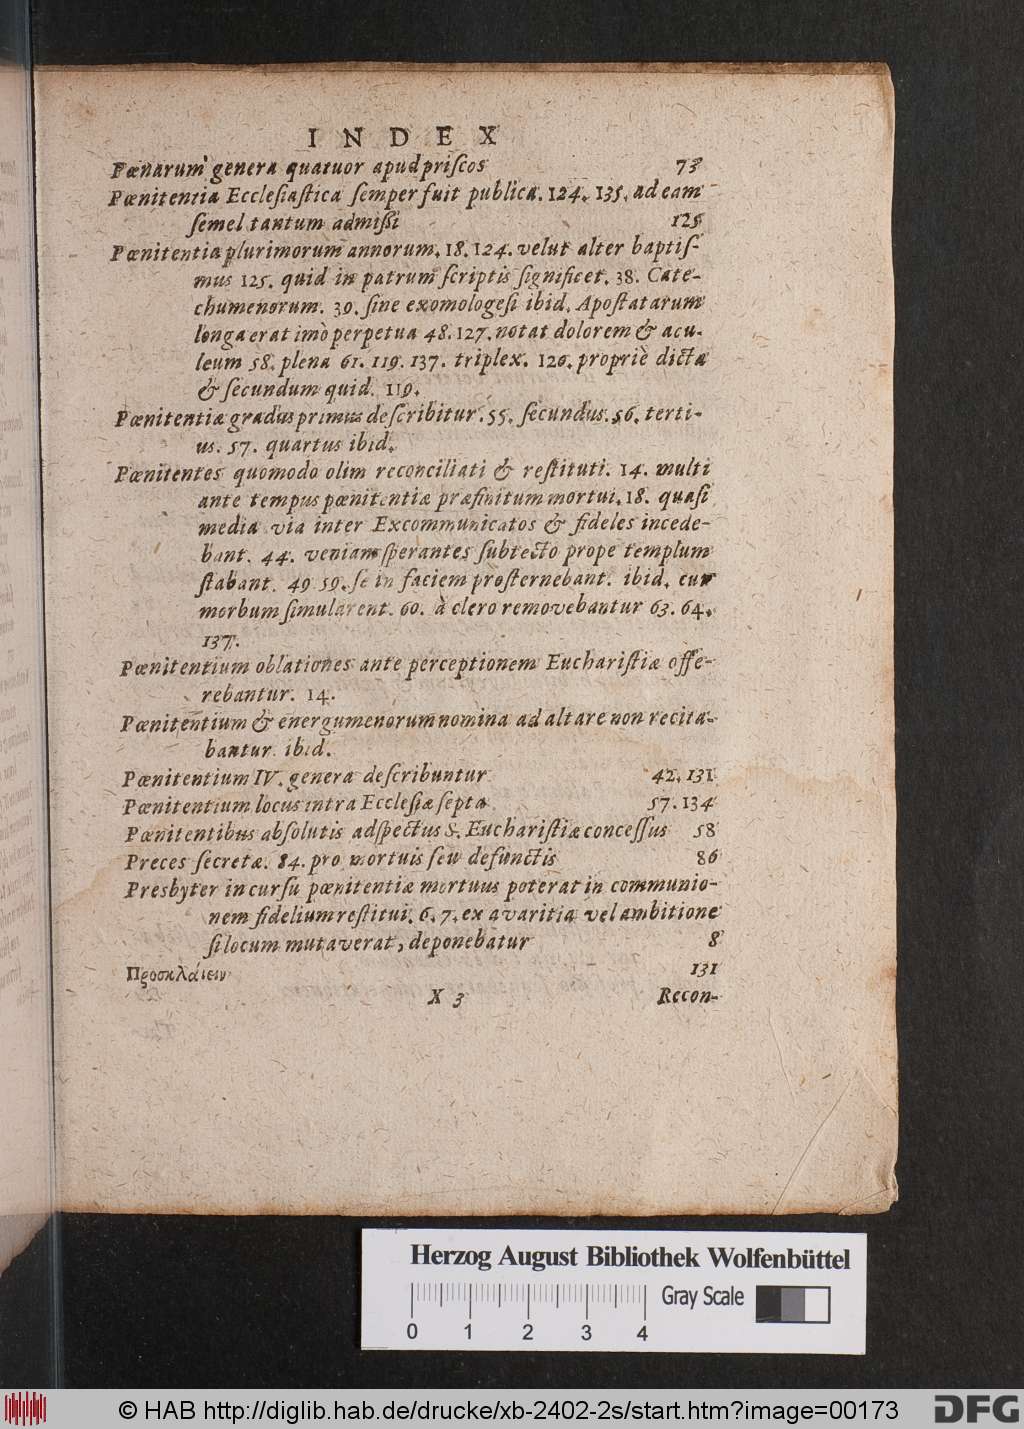 INDEX
Pœnarum genera quatuor apud priſcos 73
Pœnitentia Eccleſiaſtica ſemper fuit publica. 124. 135. ad eam
ſemel tantum admiſſi 125
Pœnitentia plurimorum annorum. 18. 124. velut alter baptiſ-
mus 125. quid in patrum ſcriptis ſignificet. 38. Cate-
chumenorum. 39. ſine exomologeſi ibid. Apoſtatarum
longa erat imò perpetua 48. 127. notat dolorem & acu-
leum 58. plena 61. 119. 137. triplex. 120. propriè dicta
& ſecundum quid. 119.
Pœnitentiæ gradus primus deſcribitur. 55. ſecundus. 56. terti-
us. 57. quartus ibid.
Pœnitentes quomodo olim reconciliati & reſtituti. 14. multi
ante tempus pœnitentiæ præfinitum mortui. 18. quaſi
media via inter Excommunicatos & fideles incede-
bant. 44. veniam ſperantes ſub tecto prope templum
ſtabant. 49 59. ſe in faciem proſternebant. ibid. cur
morbum ſimularent. 60. à clero removebantur 63. 64.
137.
Pœnitentium oblationes ante perceptionem Euchariſtiæ offe-
rebantur. 14.
Pœnitentium & energumenorum nomina ad altare non recita-
bantur. ibid.
Pœnitentium IV. genera deſcribuntur 42. 131
Pœnitentium locus intra Eccleſiæ ſepta 57. 134
Pœnitentibus abſolutis adſpectus S. Euchariſtiæ conceſſus 58
Preces ſecretæ. 84. pro mortuis ſeu defunctis 86
Presbyter in curſu pœnitentiæ mortuus poterat in communio-
nem fidelium reſtitui. 6. 7. ex avaritia vel ambitione
ſi locum mutaverat, deponebatur 8
Προσκλάιειν 131
X 3 Recon-
Herzog August Bibliothek Wolfenbüttel
Gray Scale
0 1 2 3 4
© HAB http://diglib.hab.de/drucke/xb-2402-2s/start.htm?image=00173
DFG